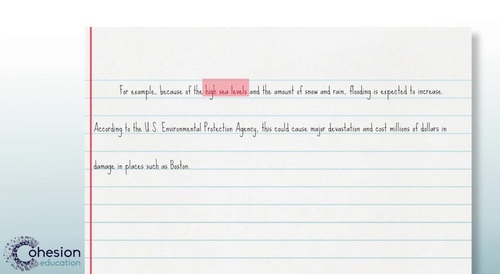 For example, because of the high sea levels and the amount of snow and rain, flooding is expected to increase.
According to the U.S. Environmental Protection Agency, this could cause major devastation and cost millions of dollars in
damage in places such as Boston.
Cohesion
education